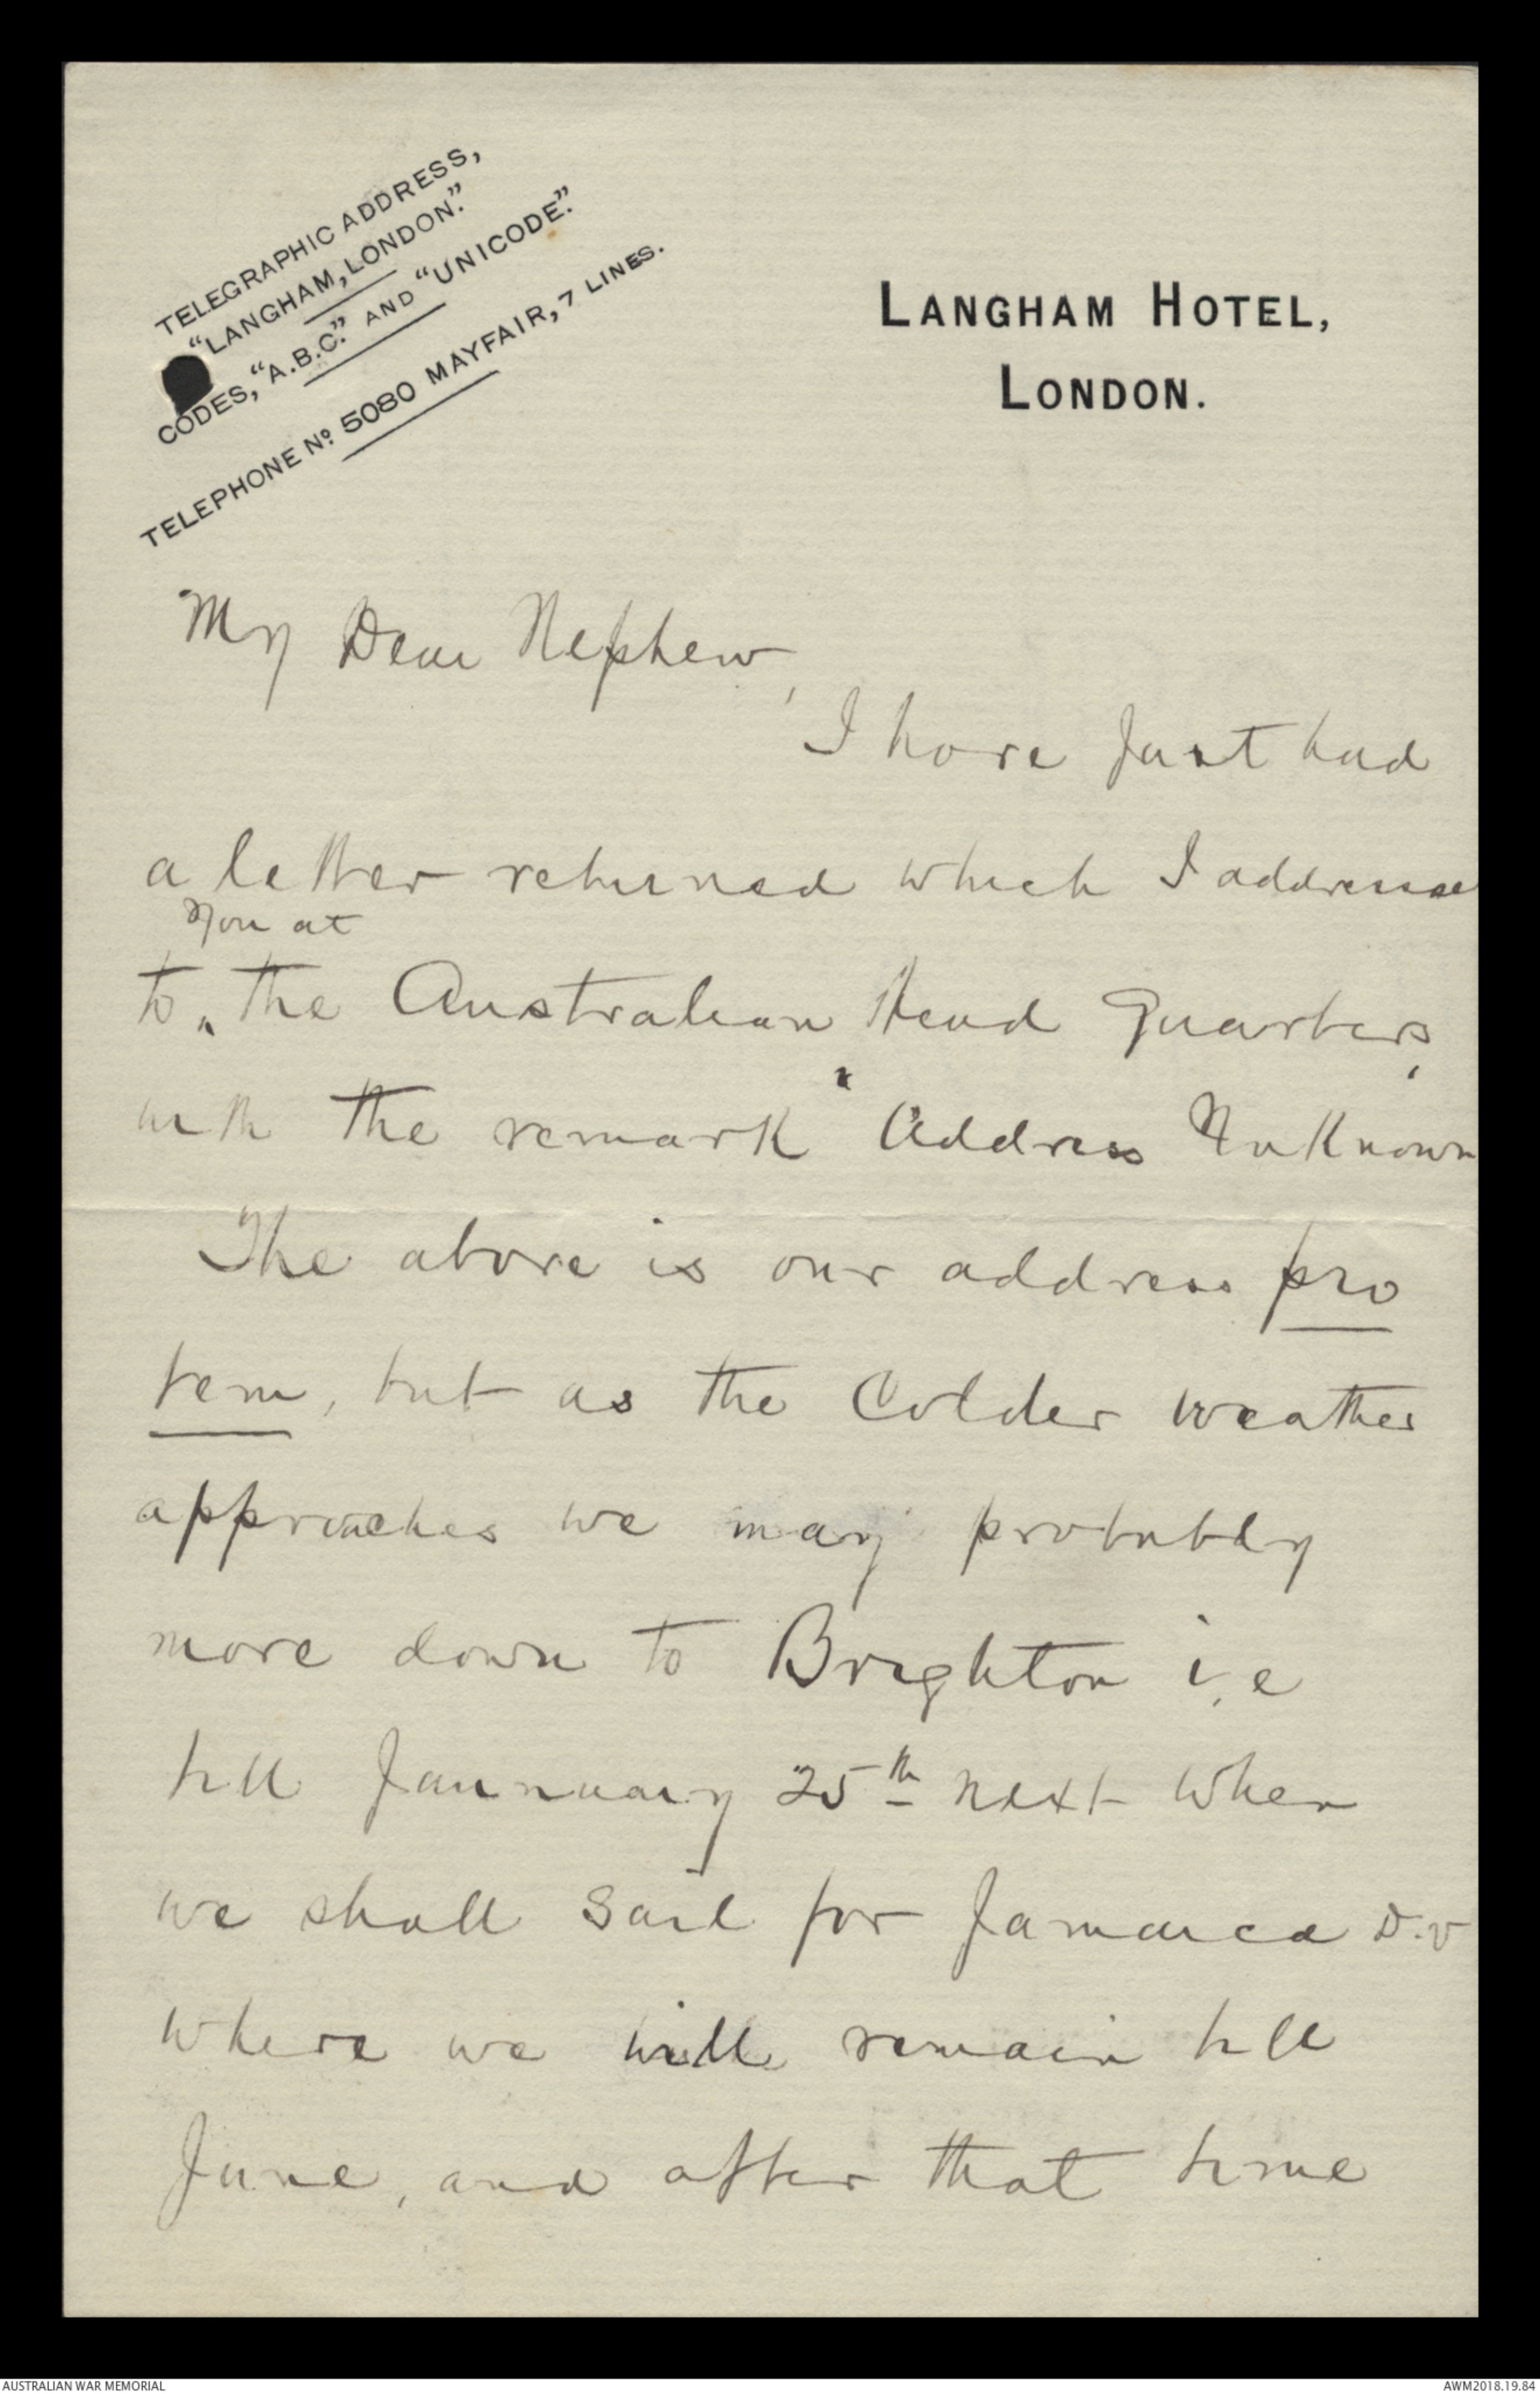 TELEGRAPHIC ADDRESS,
"LANGHAM, LONDON."
CODES, "A.B.C." AND "UNICODE."
TELEPHONE No. 5080 MAYFAIR, 7 LINES.
LANGHAM HOTEL,
LONDON.
My Dear Nephew,
I have just had
a letter returned which I addresse
you at
to ‸ the Australian Head Quarters,
with the remark "Address Unknown
The above is our address pro
tem, but as the Colder weather
approaches we may probably
move down to Brighton i.e
till Jannuary 25th next when
we shall Sail for Jamaica D.V
where we will remain till
June, and after that time
AUSTRALIAN WAR MEMORIAL
AWM2018.19.84